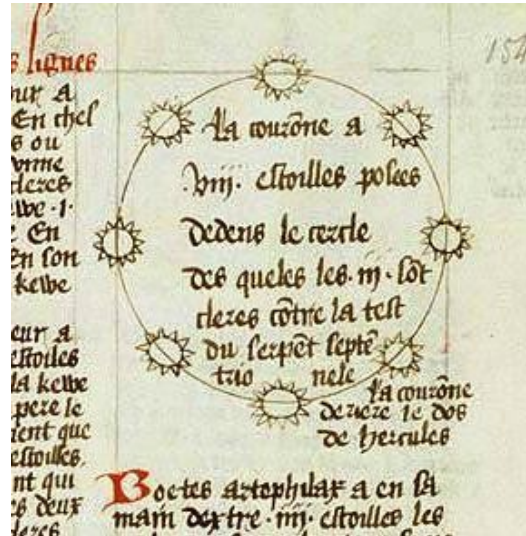 s signes
our a
En chel
s ou
cleres
kewe ·1·
e En
En son
kewe
eur a
estoiles
la kewe
pere le
ient que
estoilles.
nt qui
es deux
cleres
154
La courõne a
·viij· estoilles posees
dedens le cercle
des queles les ·iij· sõt
cleres cõtre la test
du serpẽt septẽ
trio nele
la courõne
deriere le dos
de hercules
Boetes artophilax a en sa
main dextre ·iiij· estoilles les